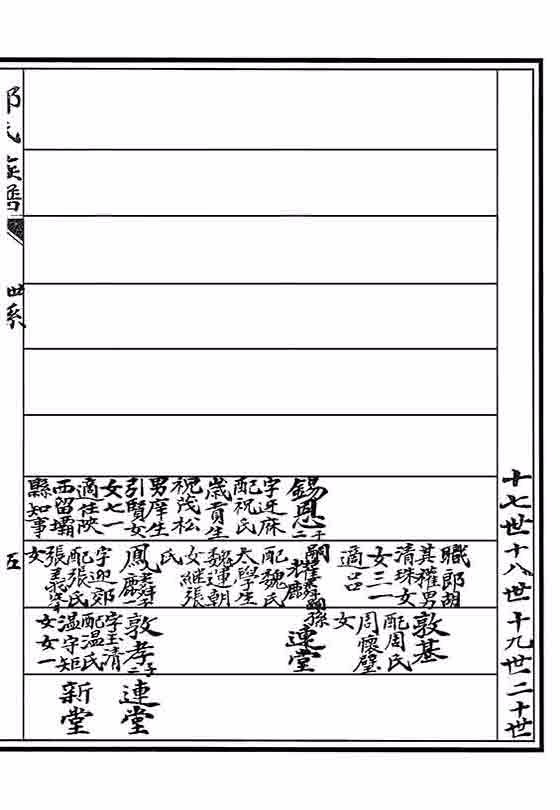 十七世十八世十九世二十世
錫恩
子二
配祝氏
歲貢生
祝茂松
男庠生
引賢女
女七一
適任陝
西留壩
縣知事
職郎胡
其權男
清珠女
女三一
適呂
配魏氏
太學生
魏連朝
女繼張
氏
鳳
字迎郊
配張氏
女
敦基
配周氏
周懷璧
女
連堂
敦孝
子二
字玉清
配温氏
温守矩
女女一
連堂
新堂
世系
五